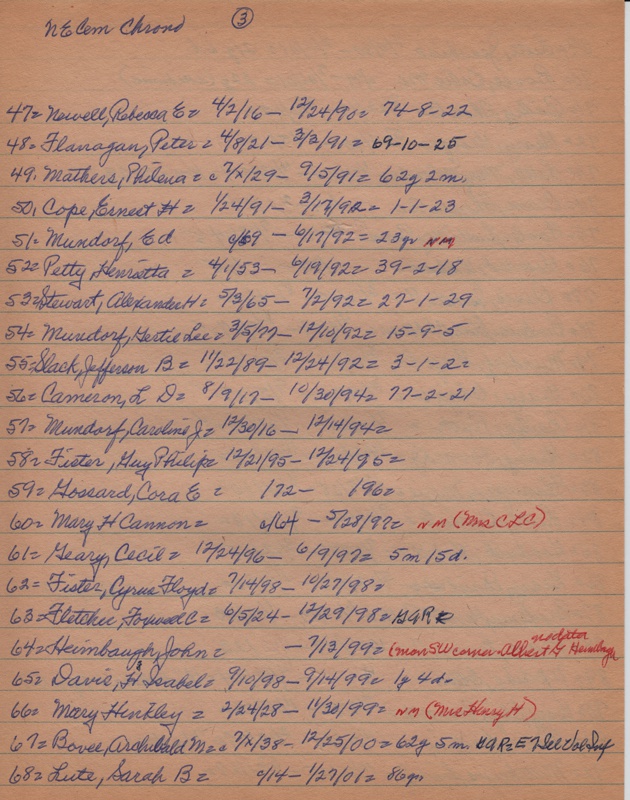 NE Cem Chrono ③
47= Newell, Rebecca E= 4/2/16 — 12/24/90= 74-8-22
48= Flanagan, Peter= 4/8/21 — 3/3/91= 69-10-25
49, Mathers, Philena= c 7/x/29 — 9/5/91= 62y 2m.
50, Cope, Ernest H= 1/24/91 — 3/17/92= 1-1-23
51= Mundorf, Ed c/69 — 6/17/92= 23yr NM
52= Petty, Henrietta = 4/1/53 — 6/19/92= 39-2-18
53= Stewart, Alexander H= 5/3/65 — 7/2/92= 27-1-29
54= Mundorf, Gertie Lee= 3/5/77 — 12/10/92= 15-9-5
55= Slack, Jefferson B= 11/22/89 — 12/24/92= 3-1-2=
56= Cameron, L D= 8/9/17 — 10/30/94= 77-2-21
57= Mundorf, Caroline J= 12/30/16 — 12/14/94=
58= Fister, Guy Philip= 12/21/95 — 12/24/95=
59= Gossard, Cora E = 172- 196=
60= Mary H Cannon= c/64 — 5/28/97= NM (Mrs CLC)
61= Geary, Cecil= 12/24/96 — 6/9/97= 5m 15d.
62= Fister, Cyrus Floyd= 7/14/98 — 10/27/98=
63= Fletcher, C= 6/5/24 — 12/29/98= GAR
64= Heimbaugh, John= — 7/13/99= (mon SW corner - Albert H Heimbaugh no dates
65= Davis, H & Isabel= 9/10/98 — 9/14/99= 1y 4d.
66= Mary Hinkley = 2/24/28 — 11/30/99= NM (Mrs Henry H)
67= Bovee, Archibald M= c 7/x/38 — 12/25/00= 62y 5m. GAR= E 7 Del Vol Inf
68= Lute, Sarah B= c/14 — 1/27/01= 86yr